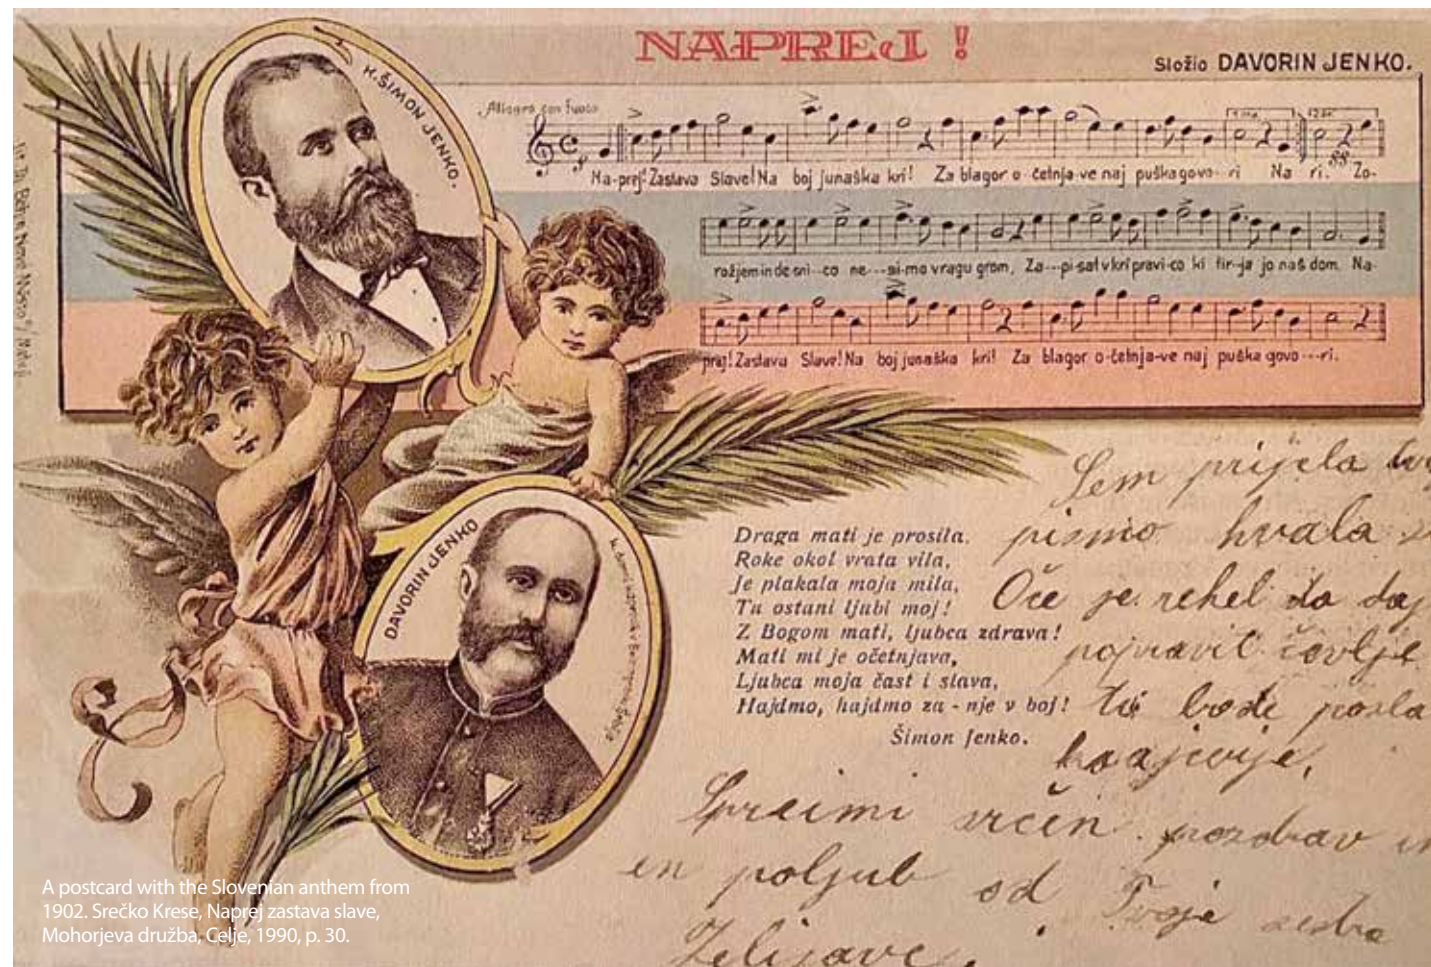 NAPREJ !
Složio DAVORIN JENKO.
K. ŠIMON JENKO.
Allegro con fuoco
Na-prej! Zastava Slave! Na boj junaška kri! Za blagor o-četnja-ve naj puška govo--ri Na ri. Zo-
rožjem in de sni--co ne---si-mo vragu grom, Za---pi-sat v kri pravi-co ki tir-ja jo naš dom. Na-
prej! Zastava Slave! Na boj junaška kri! Za blagor o-četnja-ve naj puška govo---ri.
DAVORIN JENKO
Draga mati je prosila,
Roke okol vrata vila,
Je plakala moja mila,
Tu ostani ljubi moj!
Z Bogom mati, ljubca zdrava!
Mati mi je očetnjava,
Ljubca moja čast i slava,
Hajdmo, hajdmo za-nje v boj!
Šimon Jenko.
Sem prijela
pismo hvala
Oče je rekel da daj
popravit čevlje
ti bode posla
Sprejmi srčen pozdrav in
en poljub od Tvoje
A postcard with the Slovenian anthem from
1902. Srečko Krese, Naprej zastava slave,
Mohorjeva družba, Celje, 1990, p. 30.